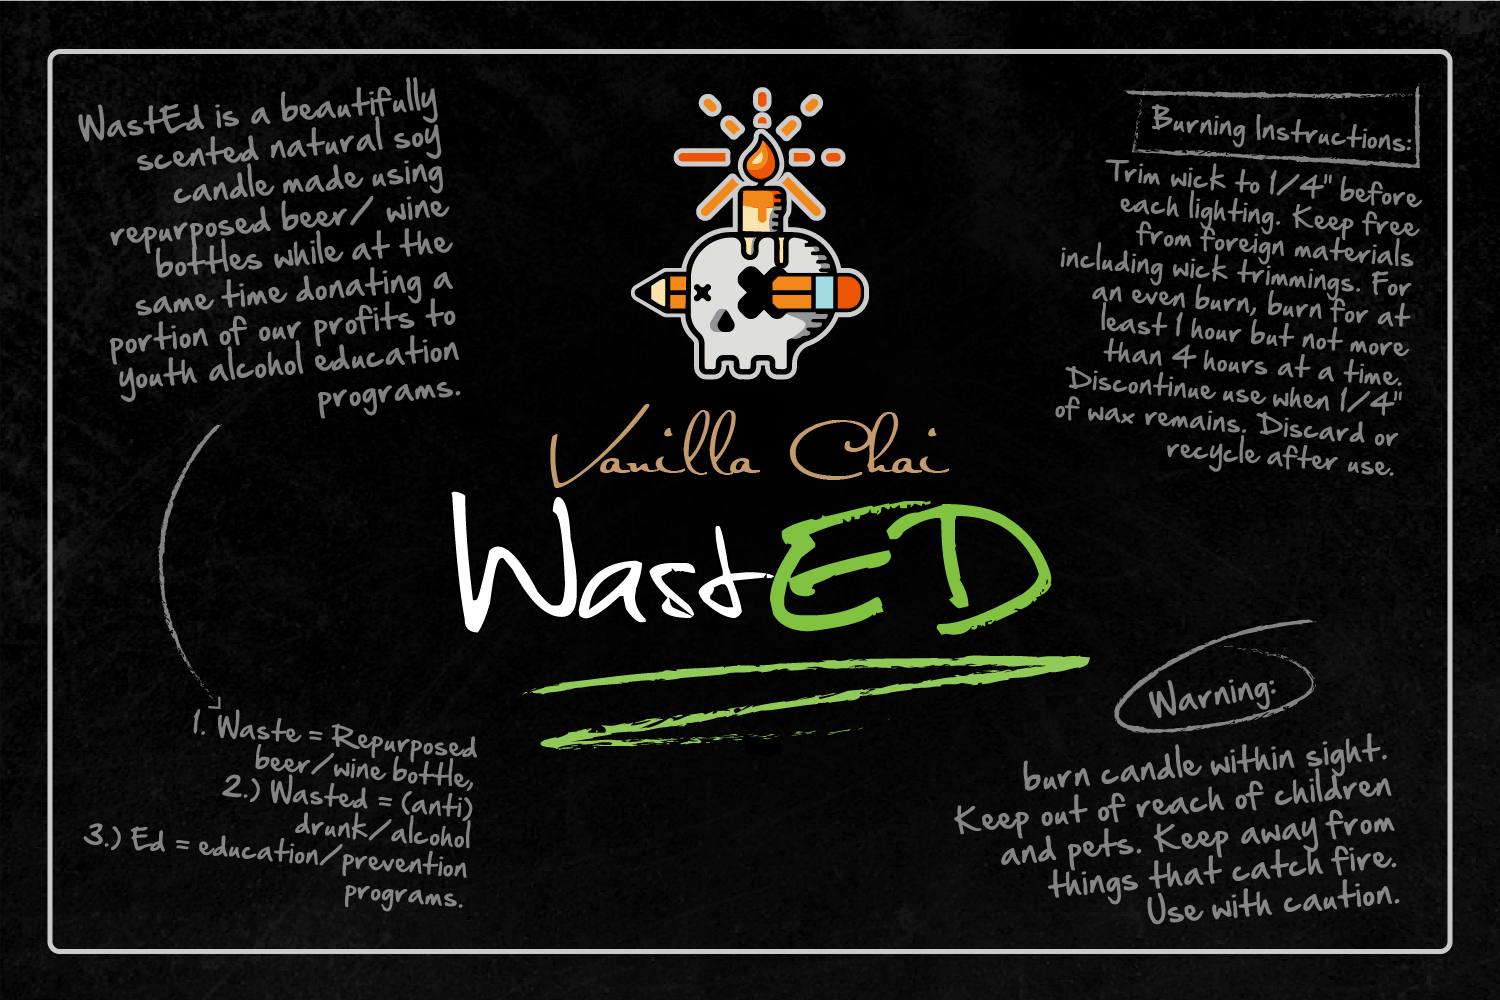 WastEd is a beautifully
scented natural soy
candle made using
repurposed beer/ wine
bottles while at the
same time donating a
portion of our profits to
youth alcohol education
programs.
Burning Instructions:
Trim wick to 1/4" before
each lighting. Keep free
from foreign materials
including wick trimmings. For
an even burn, burn for at
least 1 hour but not more
than 4 hours at a time.
Discontinue use when 1/4"
of wax remains. Discard or
recycle after use.
Vanilla Chai
WastED
1. Waste = Repurposed
beer/wine bottle,
2.) Wasted = (anti)
drunk/alcohol
3.) Ed = education/prevention
programs.
Warning:
burn candle within sight.
Keep out of reach of children
and pets. Keep away from
things that catch fire.
Use with caution.